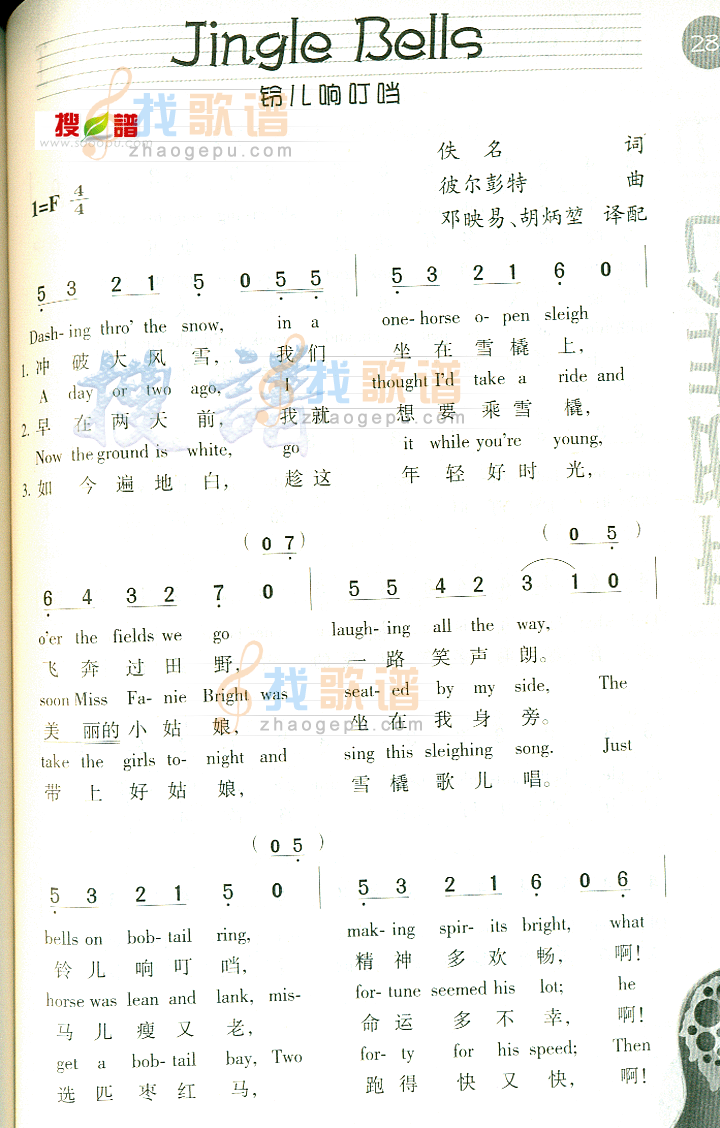 Jingle Bells
28
铃儿响叮当
搜谱
www.soopu.com
找歌谱
zhaogepu.com
佚名 词
彼尔彭特 曲
邓映易、胡炳堃 译配
1=F 4/4
5 3 2 1 5 0 5 5 | 5 3 2 1 6 0 |
Dash- ing thro' the snow, in a one- horse o- pen sleigh
1. 冲 破 大 风 雪, 我 们 坐 在 雪 橇 上,
A day or two ago, I thought I'd take a ride and
2. 早 在 两 天 前, 我 就 想 要 乘 雪 橇,
Now the ground is white, go it while you're young,
3. 如 今 遍 地 白, 趁 这 年 轻 好 时 光,
搜谱
找歌谱
zhaogepu.com
( 0 7 ) ( 0 5 )
6 4 3 2 7 0 | 5 5 4 2 3 1 0 |
o'er the fields we go laugh- ing all the way,
飞 奔 过 田 野, 一 路 笑 声 朗。
soon Miss Fa- nie Bright was seat- ed by my side, The
美 丽的 小 姑 娘, 坐 在 我 身 旁。
take the girls to- night and sing this sleighing song. Just
带 上 好 姑 娘, 雪 橇 歌 儿 唱。
找歌谱
zhaogepu.com
( 0 5 )
5 3 2 1 5 0 | 5 3 2 1 6 0 6 |
bells on bob- tail ring, mak- ing spir- its bright, what
铃 儿 响 叮 当, 精 神 多 欢 畅, 啊!
horse was lean and lank, mis- for- tune seemed his lot; he
马 儿 瘦 又 老, 命 运 多 不 幸, 啊!
get a bob- tail bay, Two for- ty for his speed; Then
选 匹 枣 红 马, 跑 得 快 又 快, 啊!